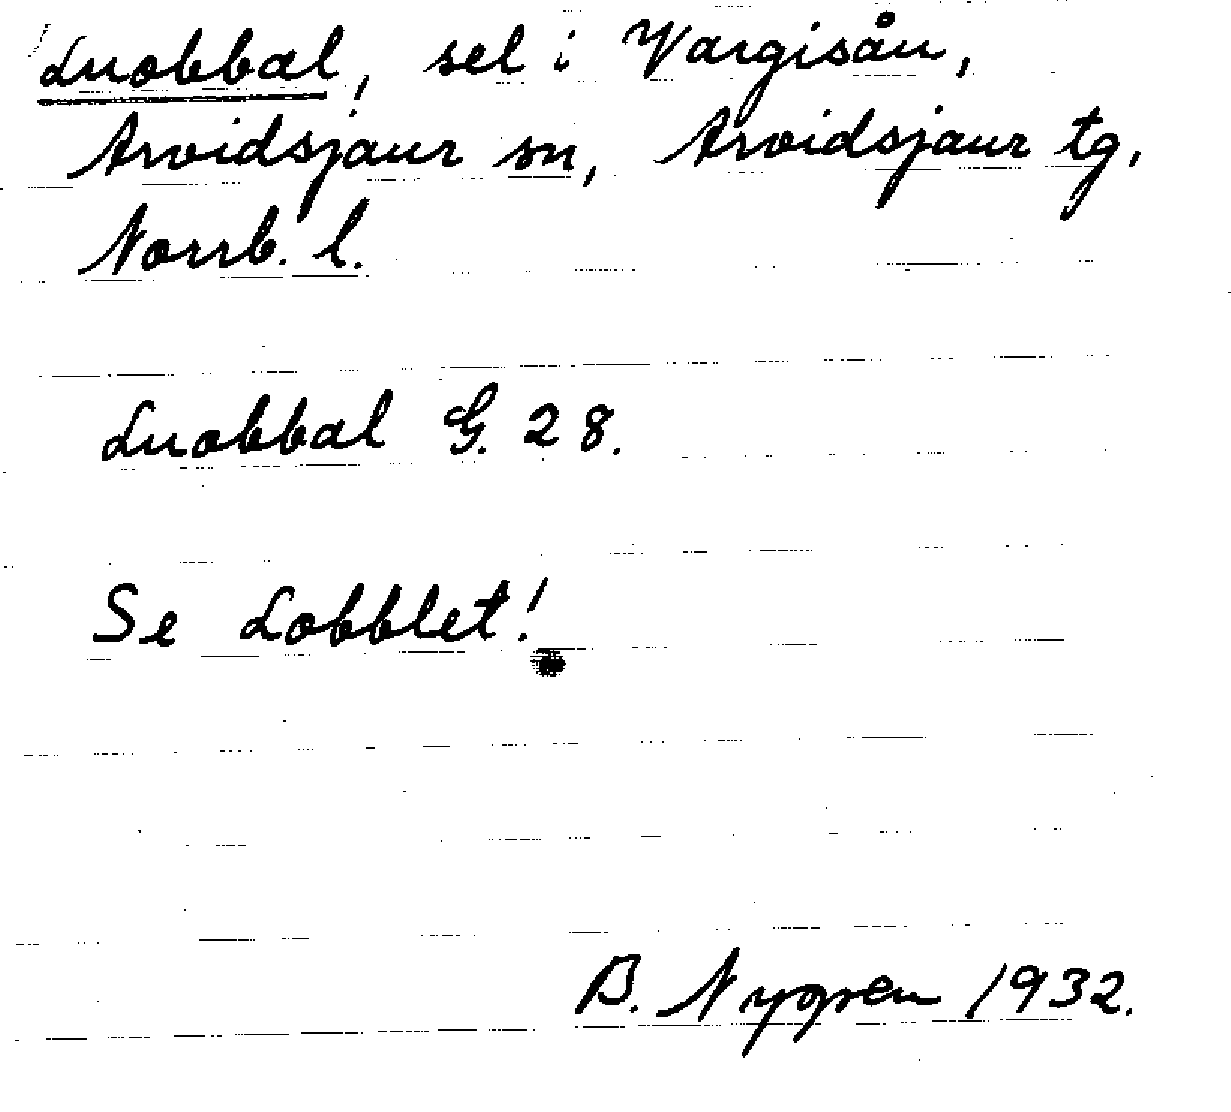 Luobbal, sel i Vargisån,
Arvidsjaur sn, Arvidsjaur tg,
Norrb. l.
Luobbal G. 28.
Se Lobblet!
B. Nygren 1932.